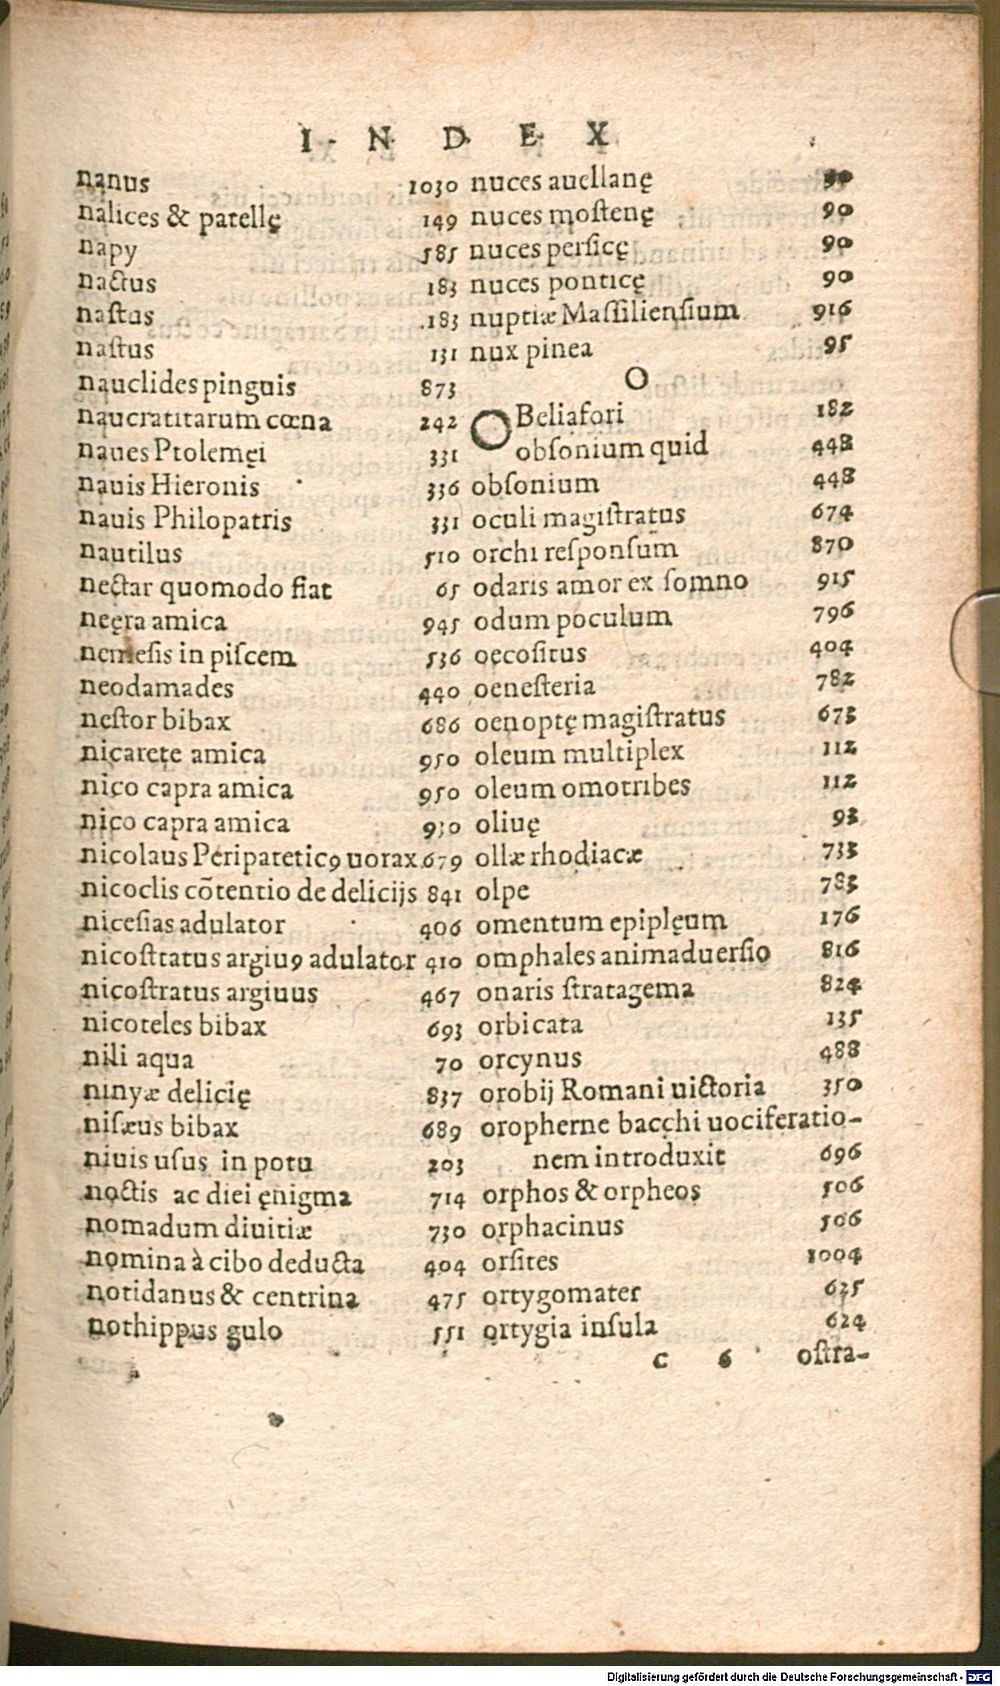 INDEX
nanus 1030
nalices & patellę 149
napy 585
nactus 183
naſtus 183
naſtus 131
nauclides pinguis 873
naucratitarum cœna 242
naues Ptolemęi 331
nauis Hieronis 336
nauis Philopatris 331
nautilus 510
nectar quomodo fiat 65
neęra amica 945
nemeſis in piſcem 536
neodamades 440
neſtor bibax 686
nicarete amica 950
nico capra amica 950
nico capra amica 930
nicolaus Peripatetic9 uorax 679
nicoclis cõtentio de delicijs 841
niceſias adulator 406
nicoſtratus argiu9 adulator 410
nicoſtratus argiuus 467
nicoteles bibax 693
nili aqua 70
ninyæ delicię 837
niſæus bibax 689
niuis uſus in potu 203
noctis ac diei ęnigma 714
nomadum diuitiæ 730
nomina à cibo deducta 404
notidanus & centrina 475
nothippus gulo 551
nuces auellanę 90
nuces moſtenę 90
nuces perſicę 90
nuces ponticę 90
nuptiæ Maſſilienſium 916
nux pinea 95
O
OBeliafori 182
obſonium quid 448
obſonium 448
oculi magiſtratus 674
orchi reſponſum 870
odaris amor ex ſomno 915
odum poculum 796
oecoſitus 404
oeneſteria 782
oenoptę magiſtratus 673
oleum multiplex 112
oleum omotribes 112
oliuę 93
ollæ rhodiacæ 733
olpe 783
omentum epiplęum 176
omphales animaduerſio 816
onaris ſtratagema 824
orbicata 135
orcynus 488
orobij Romani uictoria 350
oropherne bacchi uociferatio-
nem introduxit 696
orphos & orpheos 506
orphacinus 506
orſites 1004
ortygomater 625
ortygia inſula 624
c 6 oſtra-
Digitalisierung gefördert durch die Deutsche Forschungsgemeinschaft - DFG